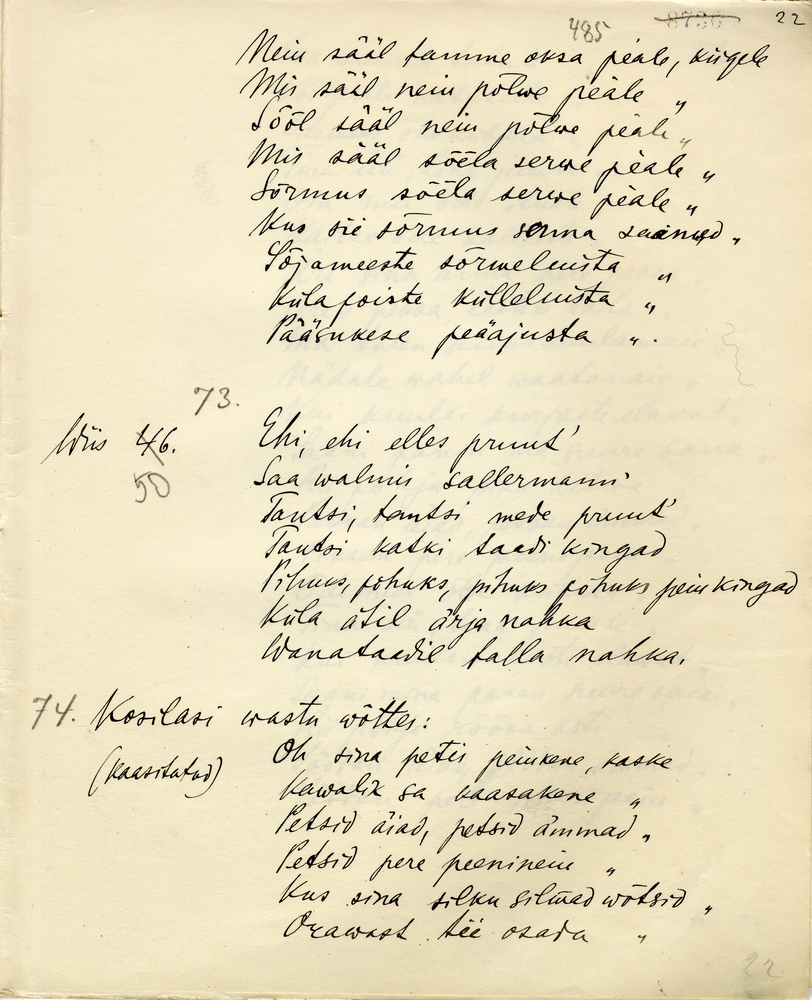 485 8736 22
Nein sääl tamme oksa peale, kiigele
Mis sääl nein põlwe peale „
Sõõl sääl nein põlwe peale „
Mis sääl sõêla serwe peale „
Sõrmus sõêla serwe peale „
Kus sie sõrmus senna saanud „
Sõjameeste sõrmeluista „
Külapoiste külleluista „
Pääsukese peäajusta „.
73.
Wiis 46. Ehi, ehi elles pruut'
50 Saa walmis sallermann'
Tantsi, tantsi mede pruut'
Tantsi katki taadi kingad
Pihuks, põhuks, pihuks põhuks pein kingad
Küla ätil ärja nahka
Wanataadil talla nahka.
74. Kosilasi wastu wõttes:
(kaasitatud) Oh sina petis peiukene, kaske
Kawalik sa kaasakene „
Petsid äiad, petsid ämmad „
Petsid pere peeninein „
Kus sina silku silmad wõtsid „
Orawast tie osada „
22